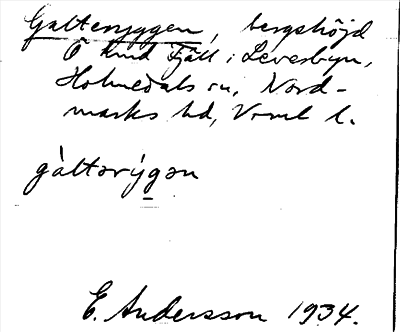 Galtenryggen, bergshöjd
Ö hmd Fjäll i Leverbyn,
Holmedals sn, Nord-
marks hd, Vrml l.
gàltərýgən
E. Andersson 1934.